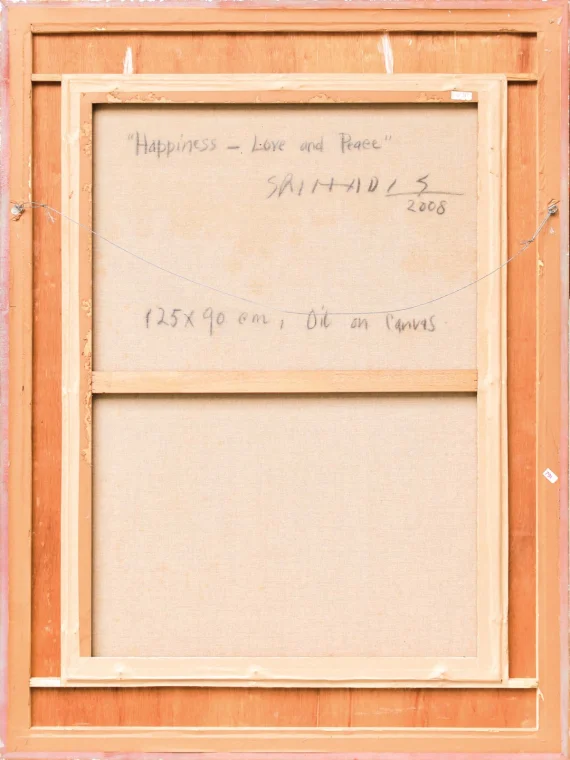 "Happiness - Love and Peace"
SRIHADI S
2008
125x90 cm, Oil on Canvas